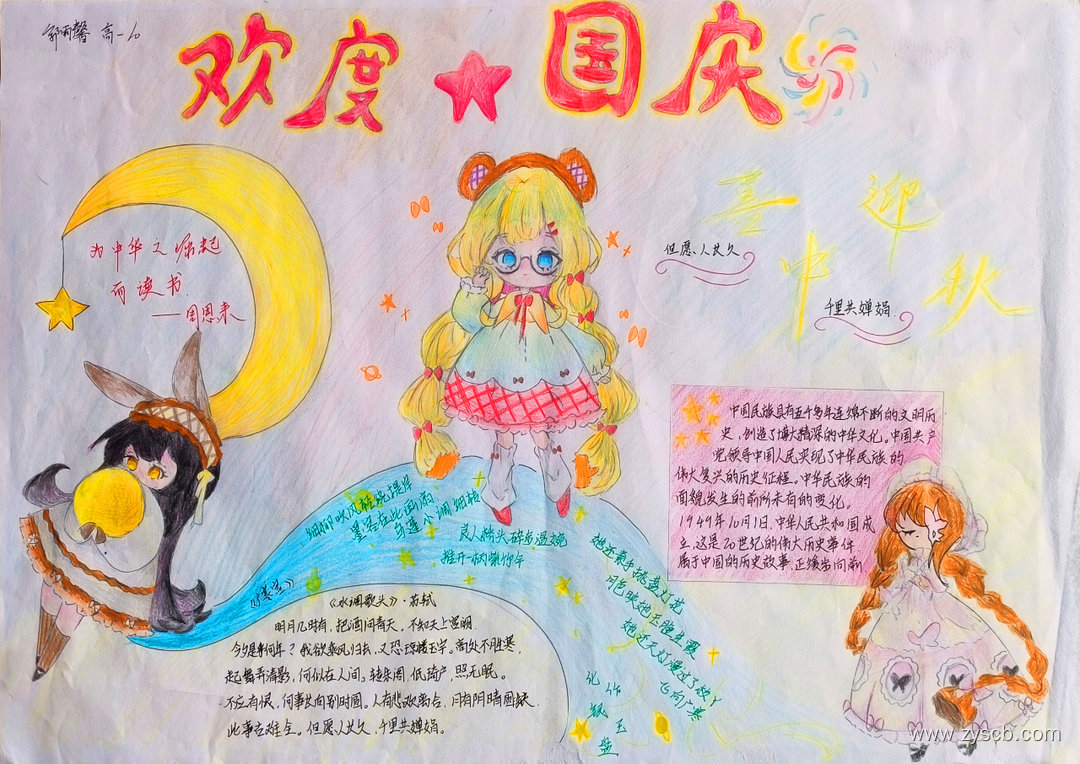 高一10
欢度国庆
喜迎
中秋
为中华之崛起
而读书
——周恩来
但愿人长久
千里共婵娟
中国民族具有五千多年连绵不断的文明历
史,创造了博大精深的中华文化。中国共产
党领导中国人民实现了中华民族的
伟大复兴的历史征程。中华民族的
面貌发生的前所未有的变化。
1949年10月1日中华人民共和国成
立,这是20世纪的伟大历史事件
属于中国的历史故事,正缓缓向前
良人桥头
推开一柄紫竹伞
她还亲手
月色映她
她还
飞向广寒
化作
玉
盘
《水调歌头》·苏轼
明月几时有,把酒问青天。不知天上宫阙
今夕是何年?我欲乘风归去,又恐琼楼玉宇。高处不胜寒
起舞弄清影,何似在人间。转朱阁,低绮户,照无眠。
不应有恨,何事长向别时圆。人有悲欢离合,月有阴晴圆缺
此事古难全。但愿人长久,千里共婵娟。
www.zyscb.com